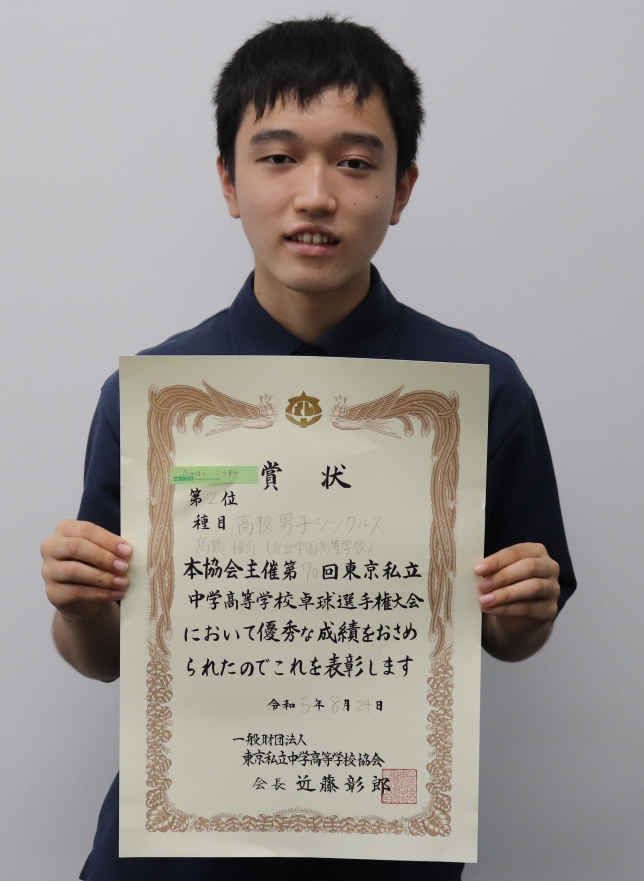 賞状
第2位
種目 高校男子シングルス
高橋 介 (足立学園高等学校)
本協会主催第70回東京私立
中学高等学校卓球選手権大会
において優秀な成績をおさめ
られたのでこれを表彰します
令和5年8月24日
一般財団法人
東京私立中学高等学校協会
会長 近藤彰郎